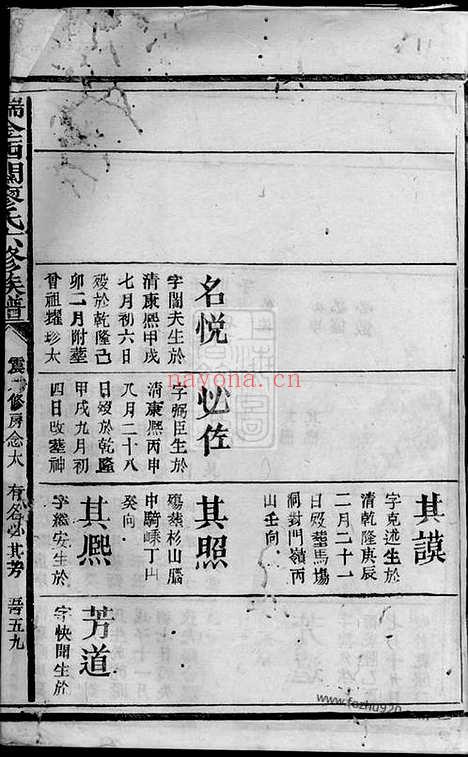 名悅
字閶夫生於
清康熙甲戌
七月初六日
歿於乾隆己
卯二月附塟
曾祖耀珍太
必佐
字弼臣生於
清康熙丙申
八月二十八
日歿於乾隆
甲戌九月初
四日改塟神
其謨
字克逑生於
清乾隆庚辰
二月二十一
日歿塟馬塲
洞封門嶺丙
山壬向
其照
殤塟杉山腦
申騎嵊丁山
癸向
其熙
字繼安生於
芳道
字快聞生於
瑞金西關廖氏六修族譜
震一修房念太 有名必其芳
五九
nayona.cn
www.fozhu920.com